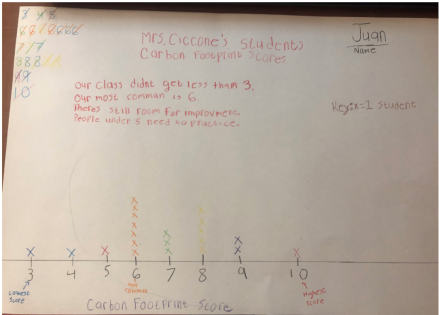 Mrs. Ciccone's Students
Carbon Footprint Scores
Juan
Name
Our class didnt get less than 3.
Our most common is 6.
Theres still room for improvment.
People under 5 need to practice.
Key: x=1 student
3 4 5 6 7 8 9 10
Lowest score
most common
Highest score
Carbon Footprint Score